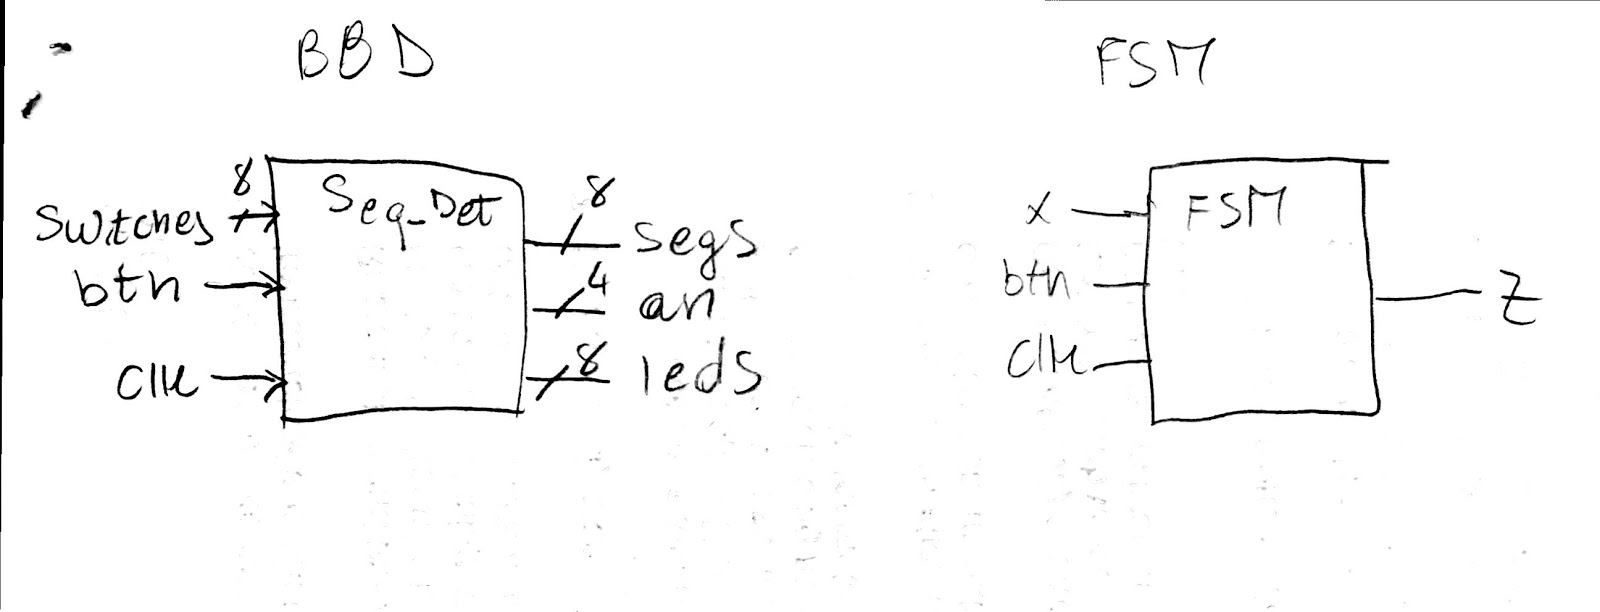 BBD
FSM
8
Switches
btn
Clk
Seq_Det
8
segs
4
an
8
leds
x
btn
Clk
FSM
Z